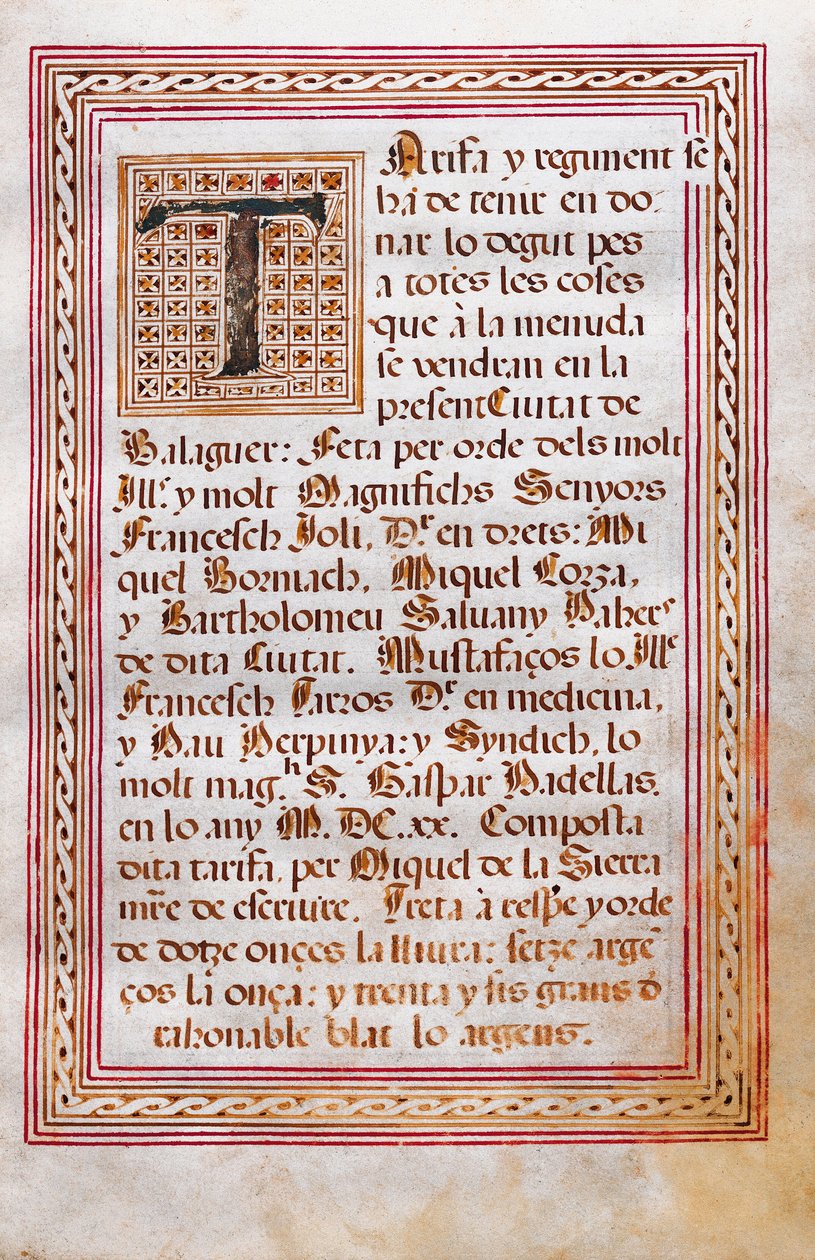 TArifa y regiment se
ha de tenir en do-
nar lo degut pes
a totes les coses
que à la menuda
se vendran en la
present Ciutat de
Balaguer: Feta per orde dels molt
Ill.s y molt Magnifichs Senyors
Francesch Ioli, D.r en drets: Mi
quel Borniach, Miquel Lorza,
y Bartholomeu Saluany Pahers
de dita Ciutat. Mustafaços lo Ill.e
Francesch Tarros D.r en medicina,
y Pau Perpinya: y Syndich, lo
molt mag.h S. Gaspar Padellas.
en lo any M. DC. xx. Composta
dita tarifa, per Miquel de la Sierra
mr̃e de escriure. Treta à respe y orde
de dotze onçes la lliura: setze argẽ
ços la onça: y trenta y sis grans d̃
rahonable blat lo argens.